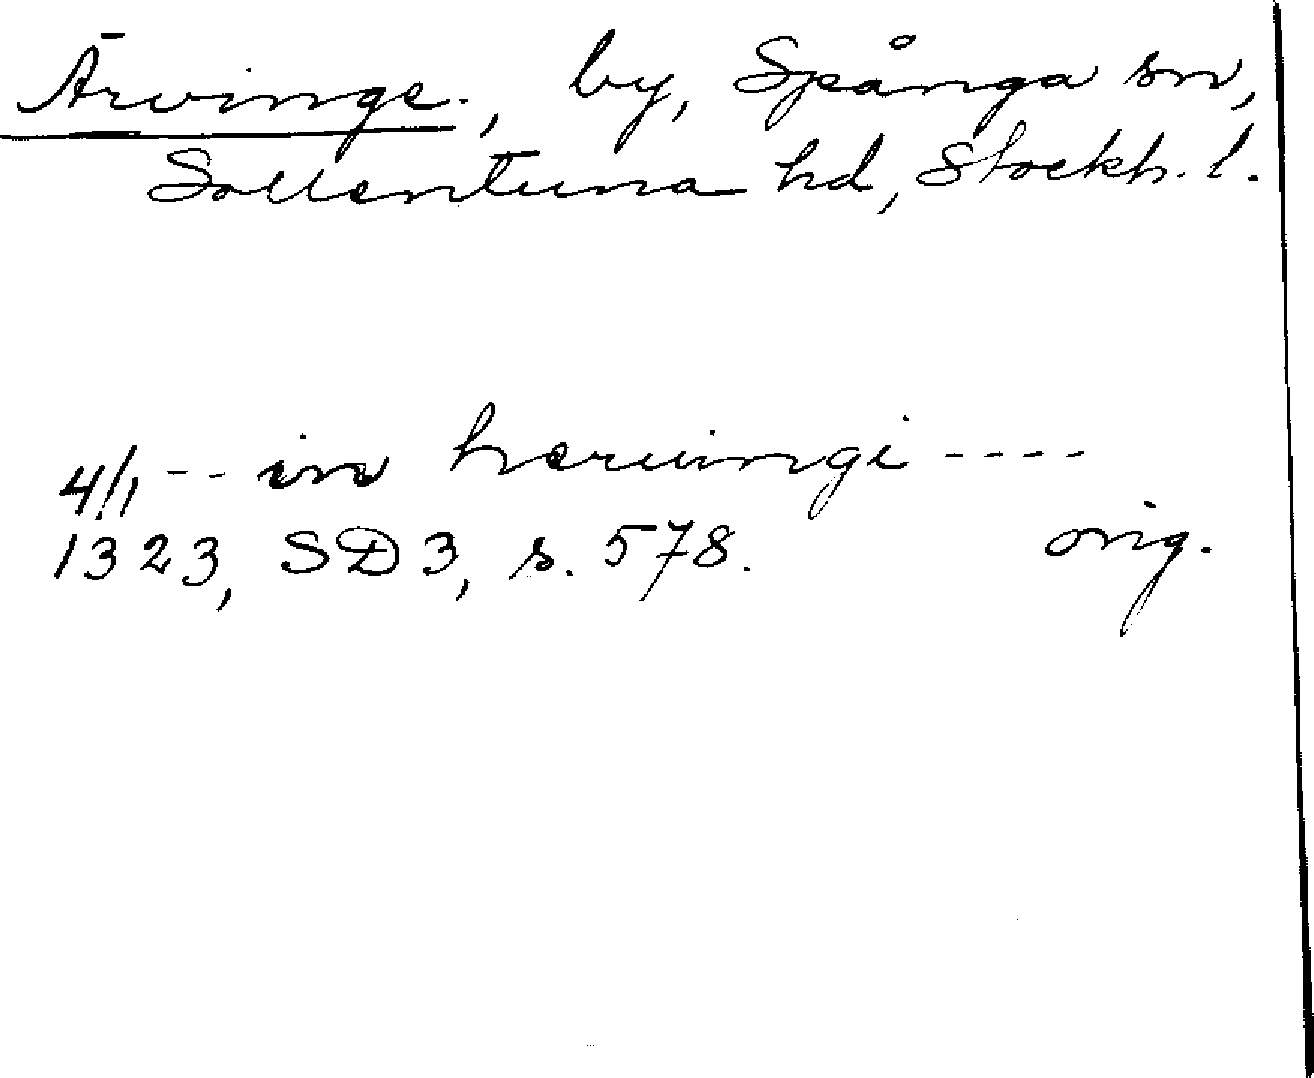 Ärvinge, by, Spånga sn,
Sollentuna hd, Stockh. l.
4/1 -- in hærwingi ----
1323, SD 3, s. 578. orig.